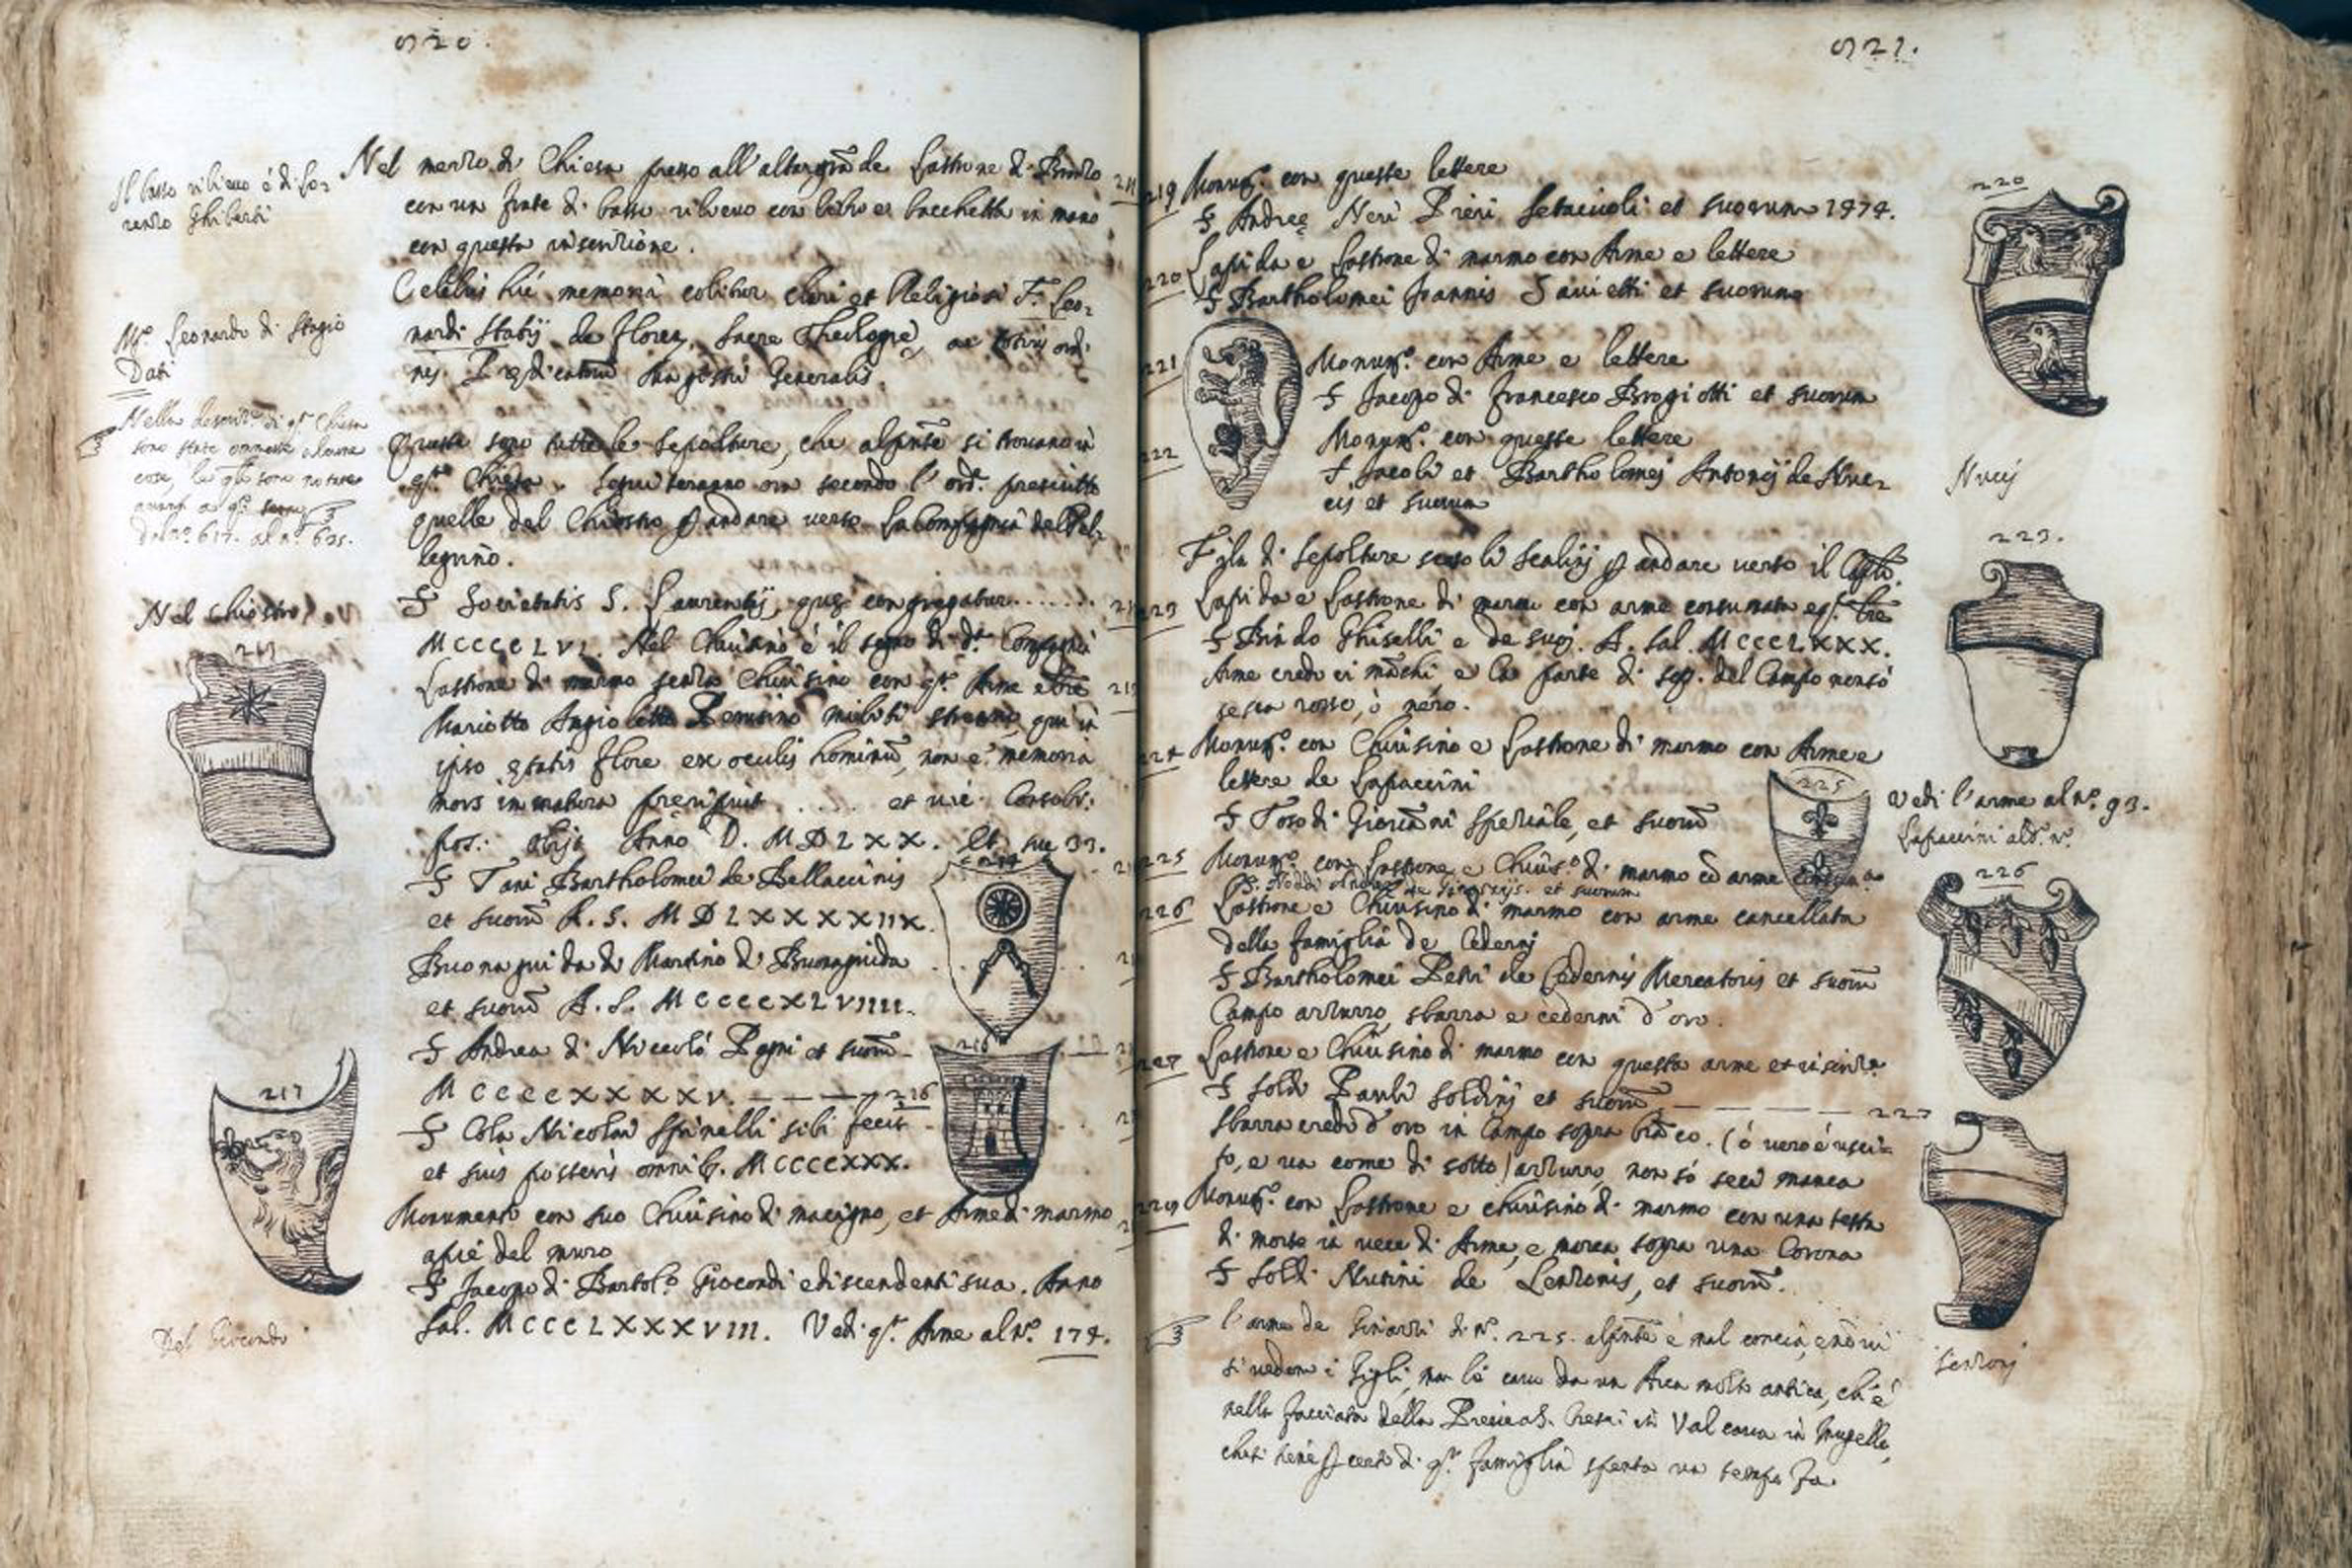 520.
Il basso rilievo è di Lo-
renzo Ghiberti
Nel mezzo di Chiesa presso all'altar grãde Lastrone di Bronzo
con un frate di basso rilievo con libro e bacchetta in mano
con questa inscrizione.
Celebris hic memoria colitur clari et Religiosi F. Leo-
nardi Statij de Floren. Sacre Theologie, ac totius ordi-
nis Predicatorũ Magistri Generalis.
Mº. Leonardo di Stagio
Dati
Nella descriz. di qª Chiesa
sono state ommesse alcune
cose, le qli sono notate
dal nº. 617. al nº. 635.
Queste sono tutte le sepolture, che alpñte si trovano in
qª. Chiesa. Seguiteranno ora secondo l'ord. prescritto
quelle del Chiostro p andare verso la Compagnia del Pel-
legrino.
Nel chiostro
S Societatis S. Laurentij, que congregatur.......
MCCCCLVI. Nel Chiusino è il segno di dª. Compagnia
213
Lastrone di marmo senza Chiusino con qª. Arme e lre
Mariotto Angioletto Perusino militi strenuo, qui in
ipso etatis flore ex oculis hominũ, non e memoria
mors immatura preripuit .... et uxi. Consobr.
pos. Obijt Anño D. MDLXX. Et. sue 33.
S Tani Bartholomei de Bellaccinis
et suorũ A. S. MDLXXXXIIX.
214
Buonaguida di Martino di Buonaguida
et suorũ A. S. MCCCCXLVIIII.
S Andrea di Niccolò Pagni et suorũ
MCCCCXXXXV. — — — 216
216
S Cola Nicolai Spinelli sibi fecit
et suis posteris omnib. MCCCCXXX.
217
Monumento con suo Chiusino di macigno, et Arme di marmo
apiè del muro
S Jacopo di Bartolº. Giocondi e discendenti sua. Anno
Sal. MCCCLXXXVIII. Vedi qª. Arme al Nº. 174.
Del Giocondo
521.
219 Monumº. con queste lettere
S Andree Neri Pieri Setaiuoli et suorum 1474.
220 Lapida e Lastrone di marmo con Arme e lettere
S Bartholomei Joannis Savietti et suorum
220
221 Monumº. con Arme e lettere
S Jacopo di Francesco Brogiotti et suorum
222 Monumº. con queste lettere
S Jacobi et Bartholomej Antonij de Nuc-
cis et suorum
Nucij
Fila di sepolture sotto li scalini p andare verso il Capto.
223 Lapida e Lastrone di marmo con arme consumata e qª. lre
S Bindo Ghiselli e de suoj. A. Sal. MCCCLXXX.
Arme credo ci mãchi e la parte di sop. del Campo non sò
se sia rosso, ò nero.
223.
224 Monumº. con Chiusino e Lastrone di marmo con Arme e
lettere de Lapaccini
S Toso di Giovãni speziale, et suorũ
Vedi l'arme al Nº. 93.
Lapaccini al dº. nº.
225
225 Monumº. con Lastrone e Chiusº. di marmo cõ arme
226 Lastrone e Chiusino di marmo con arme cancellata
della famiglia de Cedernj
S Bartholomei Petri de Cedernis Mercatoris et suorũ
Campo azzurro, sbarra e cederni d'oro.
226
227 Lastrone e Chiusino di marmo con questa arme et iscriz.
S Soldi Pauli Soldinj et suorũ — — — 227
Sbarra credo d'oro in Campo sopra biãco. (ò vero è usci-
to, e va come di sotto) azzurro, non sò se ci manca
229 Monumº. con Lastrone e chiusino di marmo con una testa
di morte in vece di Arme, e morta sopra una Corona
S Soldi Nutini de Lenzonis, et suorũ.
Lenzonj
l'arme de di Nº. 225. alpñte è mal concia, e nõ vi
si vedono i Gigli, ma la cavo da un Arca molto antica, ch'è
nella facciata della Pieve a S. Cresci in Valcava in Mugello,
di qª. famiglia spenta un tempo fa.